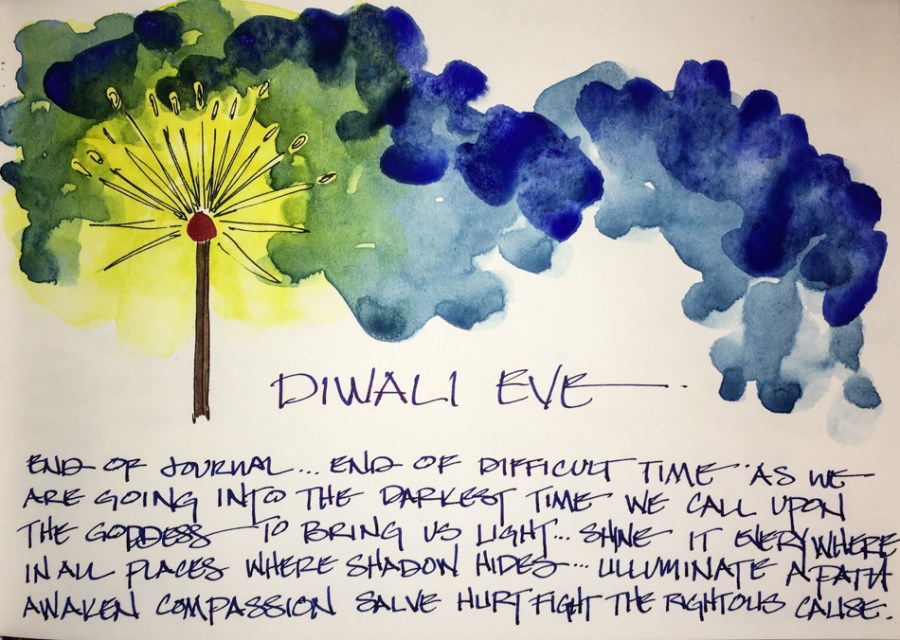 DIWALI EVE
END OF JOURNAL... END OF DIFFICULT TIME AS WE
ARE GOING INTO THE DARKEST TIME WE CALL UPON
THE GODDESS TO BRING US LIGHT... SHINE IT EVERYWHERE
IN ALL PLACES WHERE SHADOW HIDES... ILLUMINATE A PATH
AWAKEN COMPASSION SALVE HURT FIGHT THE RIGHTOUS CAUSE.